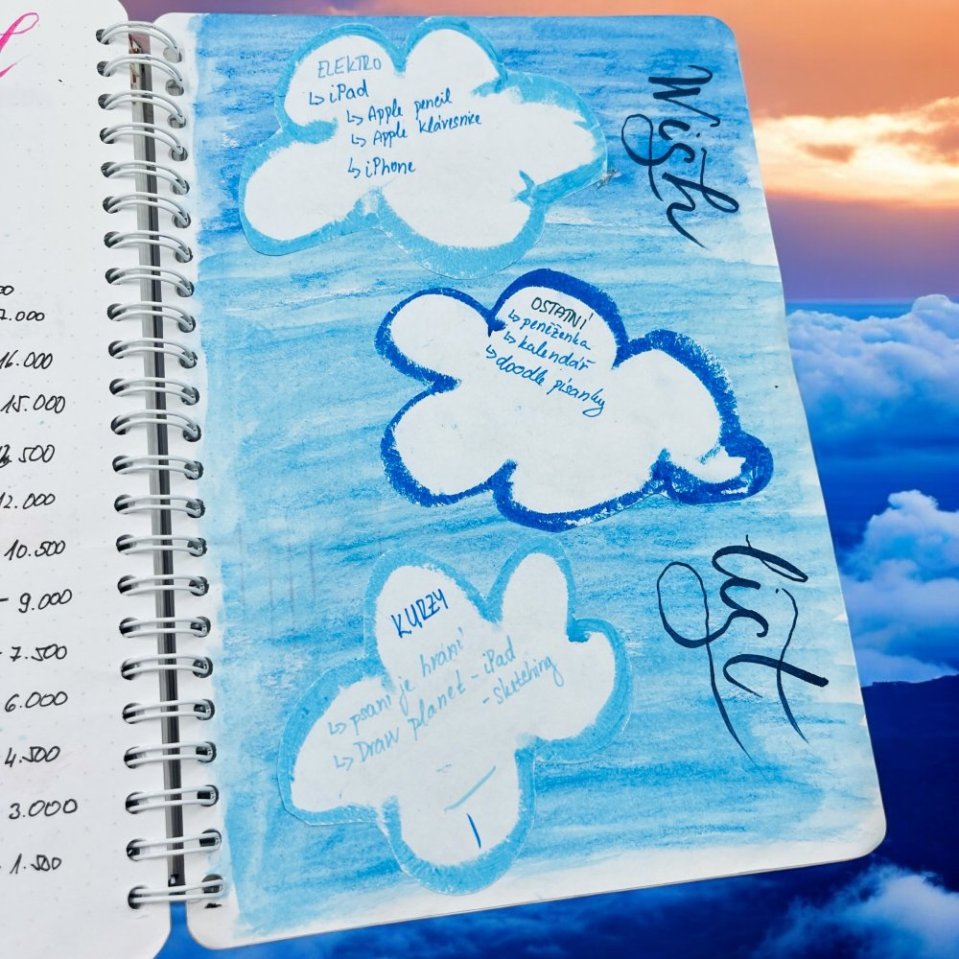 7.000
16.000
15.000
500
12.000
10.500
- 9.000
- 7.500
6.000
4.500
3.000
1.500
ELEKTRO
↳ iPad
↳ Apple pencil
↳ Apple klávesnice
↳ iPhone
Wish
OSTATNÍ
↳ peněženka
↳ kalendář
↳ doodle písanky
list
KURZY
↳ psaní je hraní
↳ Draw planet - iPad
- sketching